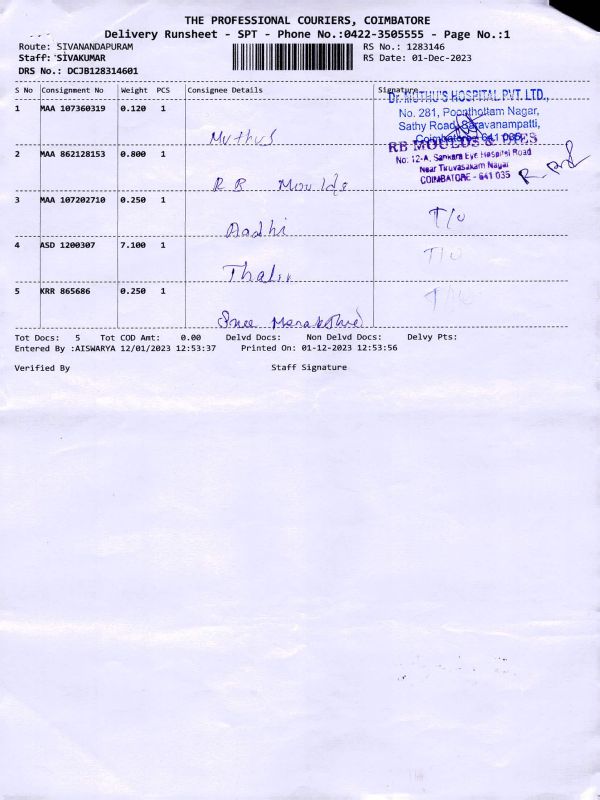 THE PROFESSIONAL COURIERS, COIMBATORE
Delivery Runsheet - SPT - Phone No.:0422-3505555 - Page No.:1
Route: SIVANANDAPURAM RS No.: 1283146
Staff: SIVAKUMAR RS Date: 01-Dec-2023
DRS No.: DCJB128314601
S No Consignment No Weight PCS Consignee Details Signature
Dr. MUTHU'S HOSPITAL PVT. LTD.,
1 MAA 107360319 0.120 1
No. 281, Poonthottam Nagar,
Sathy Road, Saravanampatti,
Muthus Coimbatore - 641 035.
RB MOULDS & DIES
2 MAA 862128153 0.800 1
No: 12-A, Sankara Eye Hospital Road
Near Tiruvasakam Nagar
COIMBATORE - 641 035
R B Moulds
3 MAA 107202710 0.250 1
T/o
Aadhi
4 ASD 1200307 7.100 1
T/o
5 KRR 865686 0.250 1
Sree
Tot Docs: 5 Tot COD Amt: 0.00 Delvd Docs: Non Delvd Docs: Delvy Pts:
Entered By :AISWARYA 12/01/2023 12:53:37 Printed On: 01-12-2023 12:53:56
Verified By Staff Signature